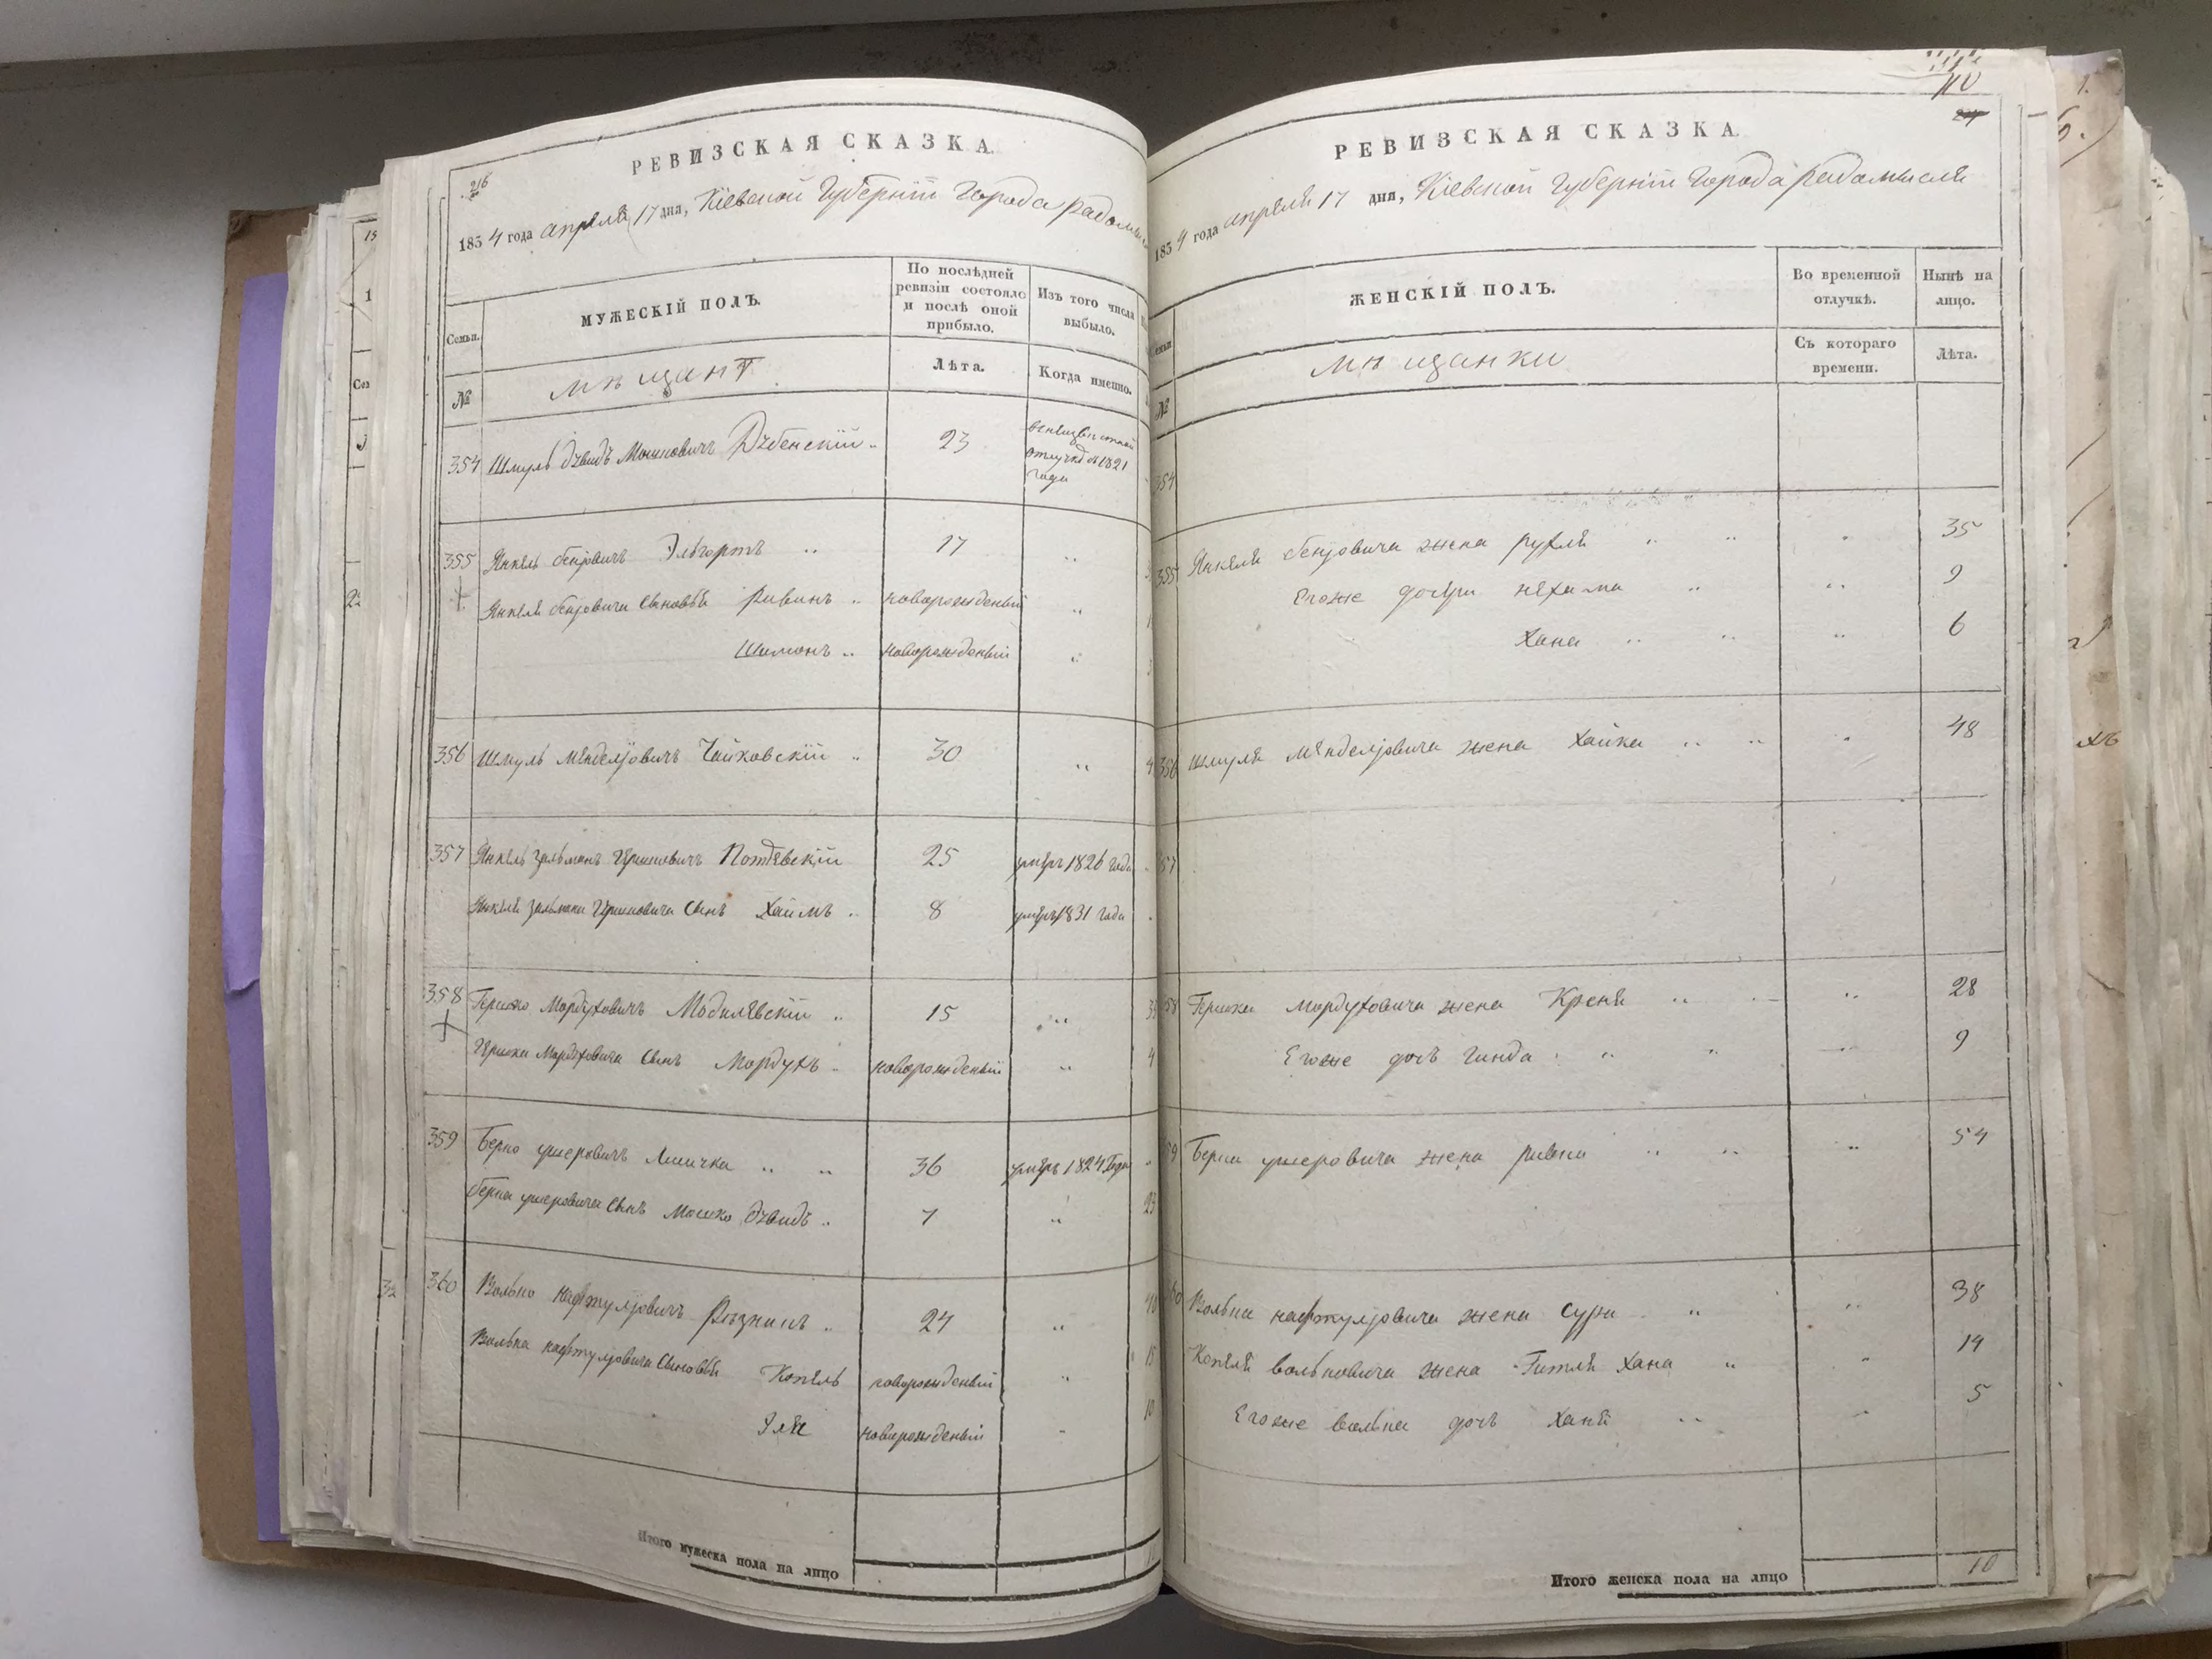 216
РЕВИЗСКАЯ СКАЗКА.
1834 года апреля 17 дня, Кіевской Губерніи Города Радомы
Семьи.
МУЖЕСКІЙ ПОЛЪ.
По послѣдней ревизіи состояло и послѣ оной прибыло.
Изъ того числа выбыло.
№
мѣщанѣ
Лѣта.
Когда именно.
354 Шмуль Дувидъ Мошковичъ Дубенскій 23 отлучкѣ с 1821 года
355 Янкель Беніовичъ Эльгортъ 17
Янкеля Беніовича сыновья Рувинъ новорожденый
Шимонъ новорожденый
356 Шмуль Мендельовичъ Чайковскій 30
357 Янкель Зельманъ Гершковичъ 25 умеръ 1826 года
Янкеля Зельмана Гершковича сынъ Хаимъ 8 умеръ 1831 года
358 Гершко Мордуховичъ Могилевскій 15
Гершка Мордуховича сынъ Мордухъ новорожденый
359 Берко Ушеровичъ Лисичка 36 умеръ 1824 года
Берка Ушеровича сынъ Мошко Дувидъ 7
360 Волько Нафтуліовичъ Резникъ 24
Волька Нафтуліовича сыновья Копель новорожденый
Эля новорожденый
Итого мужеска пола на лицо
110
РЕВИЗСКАЯ СКАЗКА.
1834 года апреля 17 дня, Кіевской Губерніи Города Радомысля
ЖЕНСКІЙ ПОЛЪ.
Во временной отлучкѣ.
Нынѣ на лицо.
№
мѣщанки
Съ котораго времени.
Лѣта.
354
355 Янкеля Беніовича жена Рухля 35
Егоже дочери Нехама 9
Хана 6
356 Шмуля Мендельовича жена Хайка 48
57
58 Гершка Мордуховича жена Крейня 28
Егоже дочь Гинда 9
59 Берка Ушеровича жена Ривка 54
60 Волька Нафтуліовича жена Сура 38
Копеля Вольковича жена Гитля Хана 19
Егоже Волька дочь Ханя 5
Итого женска пола на лицо 10